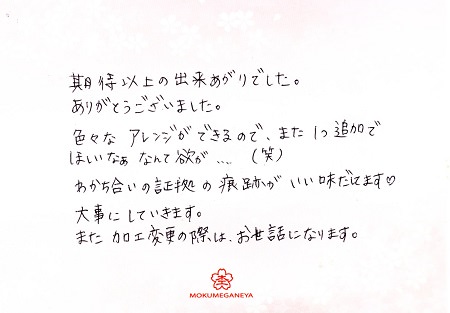 期待以上の出来あがりでした。
ありがとうございました。
色々な アレンジが できるので、また 1つ 追加で
ほしいなぁ なんて 欲が‥‥ (笑)
わかち合いの 証拠 の 痕跡が いい味だしてます♡
大事に していきます。
また 加工変更の際は、お世話になります。
MOKUMEGANEYA